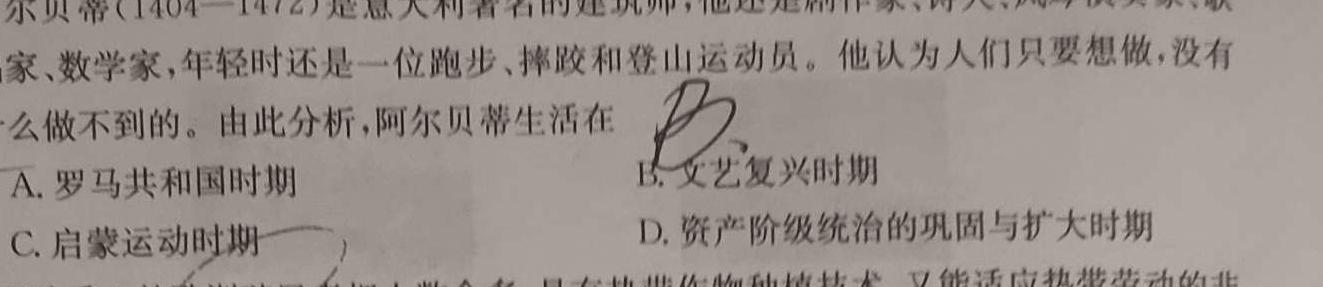 尔贝蒂(1404—1472)是意大利著名的建筑师,他还是剧作家、诗人、
家、数学家,年轻时还是一位跑步、摔跤和登山运动员。他认为人们只要想做,没有
么做不到的。由此分析,阿尔贝蒂生活在 B
A. 罗马共和国时期 B. 文艺复兴时期
C. 启蒙运动时期 D. 资产阶级统治的巩固与扩大时期
又能适应热带劳动的非